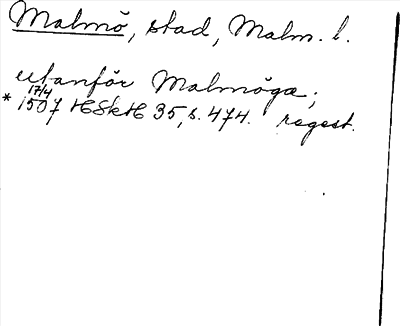 Malmö, stad, Malm. l.
utanför Malmöga;
17/4
* 1507 HSkH 35, s. 474. regest.